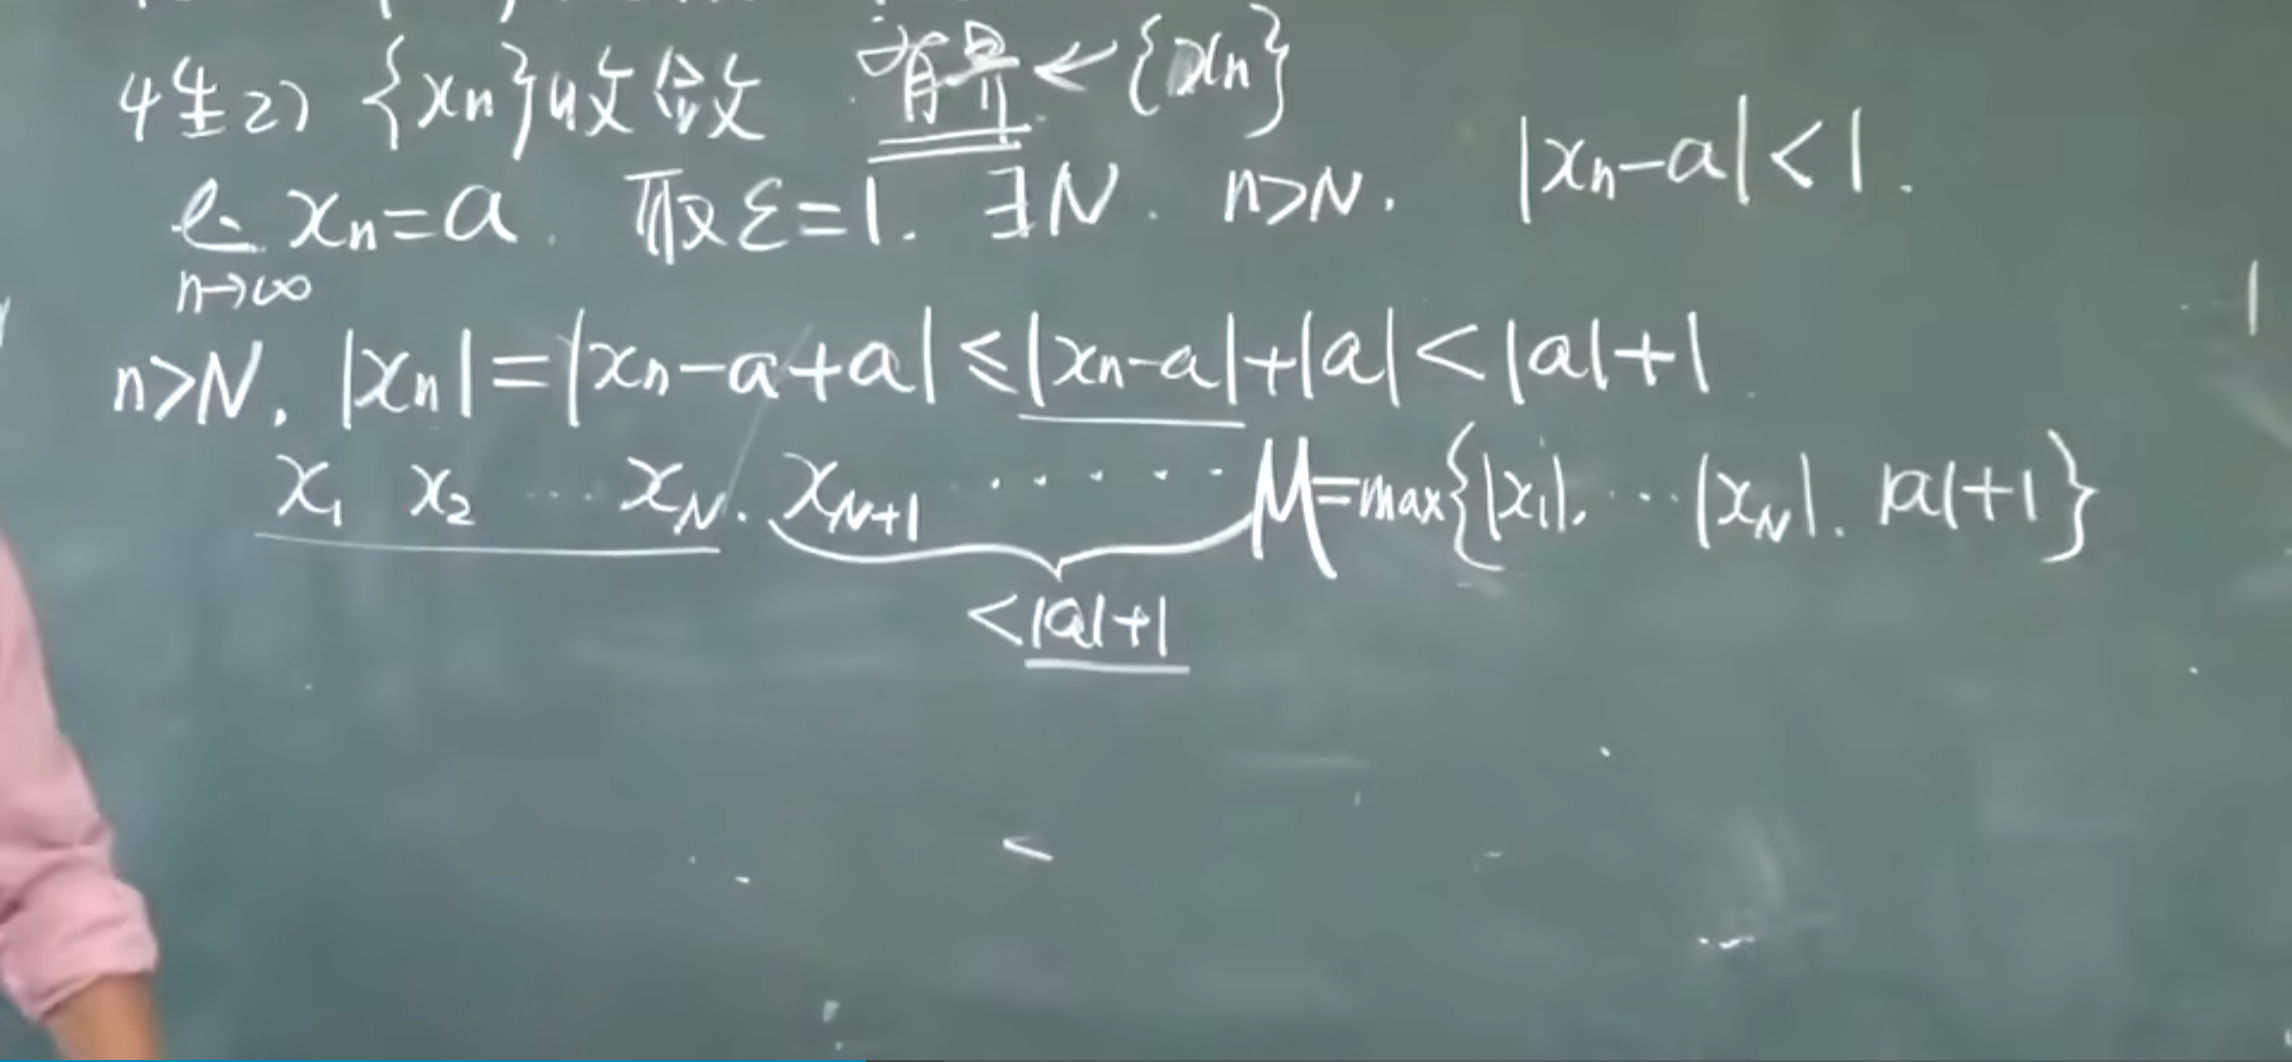 性2) {xn}收敛 有界←{xn}
lim xn=a. 取ε=1. ∃N. n>N. |xn-a|<1.
n→∞
n>N. |xn|=|xn-a+a|≤|xn-a|+|a|<|a|+1
x1 x2 … xN. xN+1 …… M=max{|x1|. … |xN|. |a|+1}
<|a|+1